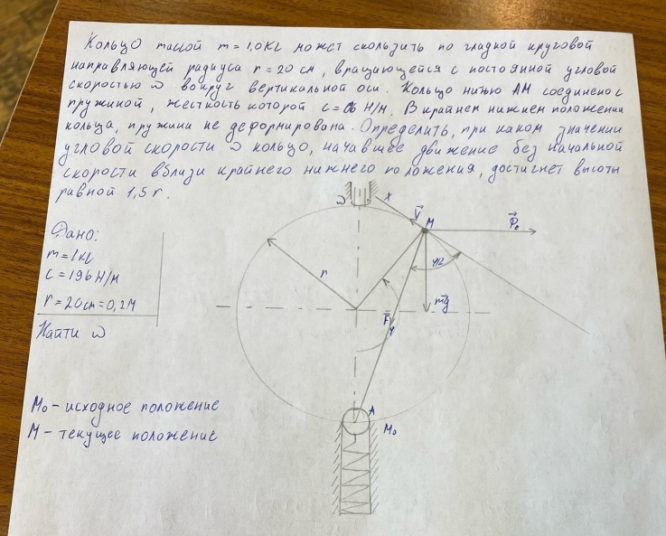 Кольцо массой m = 1,0 кг может скользить по гладкой круговой
направляющей радиуса r = 20 см, вращающейся с постоянной угловой
скоростью ω вокруг вертикальной оси. Кольцо нитью AM соединено с
пружиной, жесткость которой c = Н/м. В крайнем нижнем положении
кольца, пружина не деформирована. Определить, при каком значении
угловой скорости ω кольцо, начавшее движение без начальной
скорости вблизи крайнего нижнего положения, достигнет высоты
равной 1,5 r.
ω
x
V
M
r
mg
F
A
M₀
Дано:
m = 1 кг
c = 196 Н/м
r = 20 см = 0,2 м
Найти ω
M₀ - исходное положение
M - текущее положение